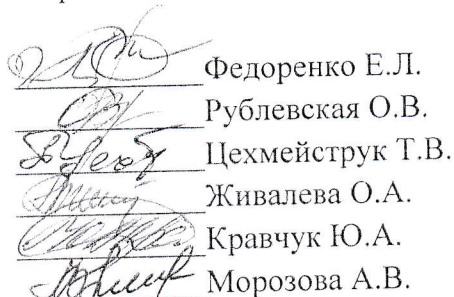 Федоренко Е.Л.
Рублевская О.В.
Цехмейструк Т.В.
Живалева О.А.
Кравчук Ю.А.
Морозова А.В.